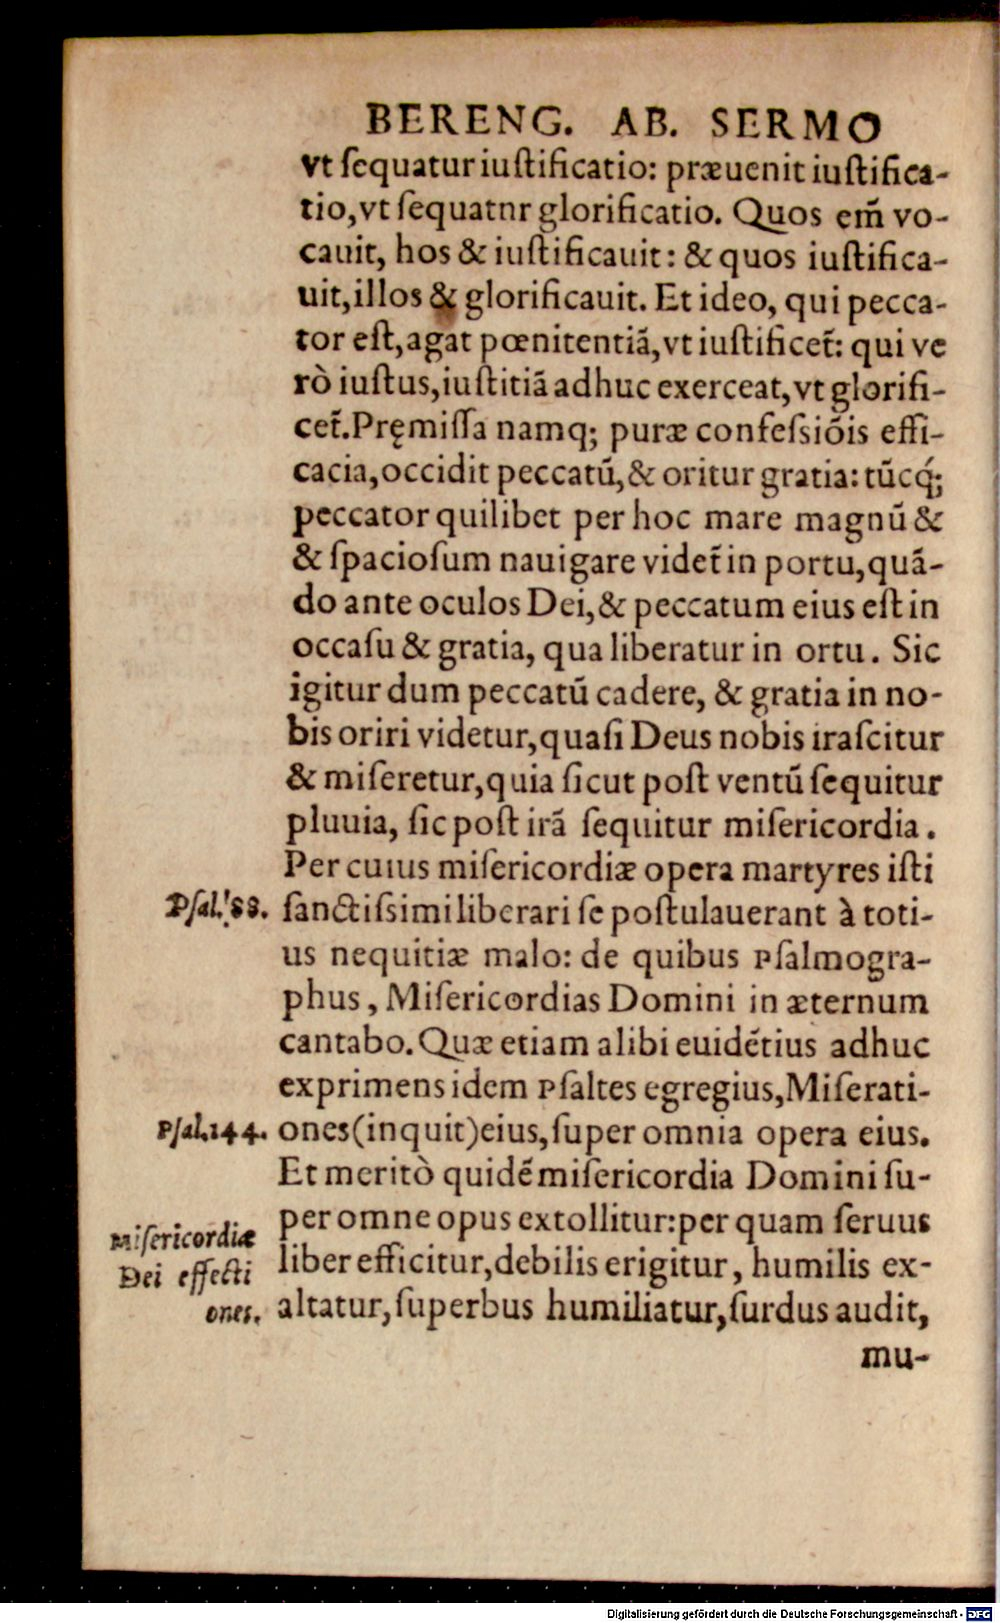 BERENG. AB. SERMO
vt ſequatur iuſtificatio: præuenit iuſtifica-
tio, vt ſequatnr glorificatio. Quos em̃ vo-
cauit, hos & iuſtificauit: & quos iuſtifica-
uit, illos & glorificauit. Et ideo, qui pecca-
tor eſt, agat pœnitentiã, vt iuſtificet̃: qui ve
rò iuſtus, iuſtitiã adhuc exerceat, vt glorifi-
cet̃. Pręmiſſa namq; puræ confeſsiõis effi-
cacia, occidit peccatũ, & oritur gratia: tũcq́;
peccator quilibet per hoc mare magnũ &
& ſpacioſum nauigare videt̃ in portu, quã-
do ante oculos Dei, & peccatum eius eſt in
occaſu & gratia, qua liberatur in ortu. Sic
igitur dum peccatũ cadere, & gratia in no-
bis oriri videtur, quaſi Deus nobis iraſcitur
& miſeretur, quia ſicut poſt ventũ ſequitur
pluuia, ſic poſt irã ſequitur miſericordia.
Per cuius miſericordiæ opera martyres iſti
Pſal. 88.
ſanctiſsimi liberari ſe poſtulauerant à toti-
us nequitiæ malo: de quibus pſalmogra-
phus, Miſericordias Domini in æternum
cantabo. Quæ etiam alibi euidẽtius adhuc
exprimens idem pſaltes egregius, Miſerati-
Pſal. 144.
ones (inquit) eius, ſuper omnia opera eius.
Et meritò quidẽ miſericordia Domini ſu-
per omne opus extollitur: per quam ſeruus
Miſericordiæ
liber efficitur, debilis erigitur, humilis ex-
Dei effecti
altatur, ſuperbus humiliatur, ſurdus audit,
ones.
mu-
Digitalisierung gefördert durch die Deutsche Forschungsgemeinschaft - DFG